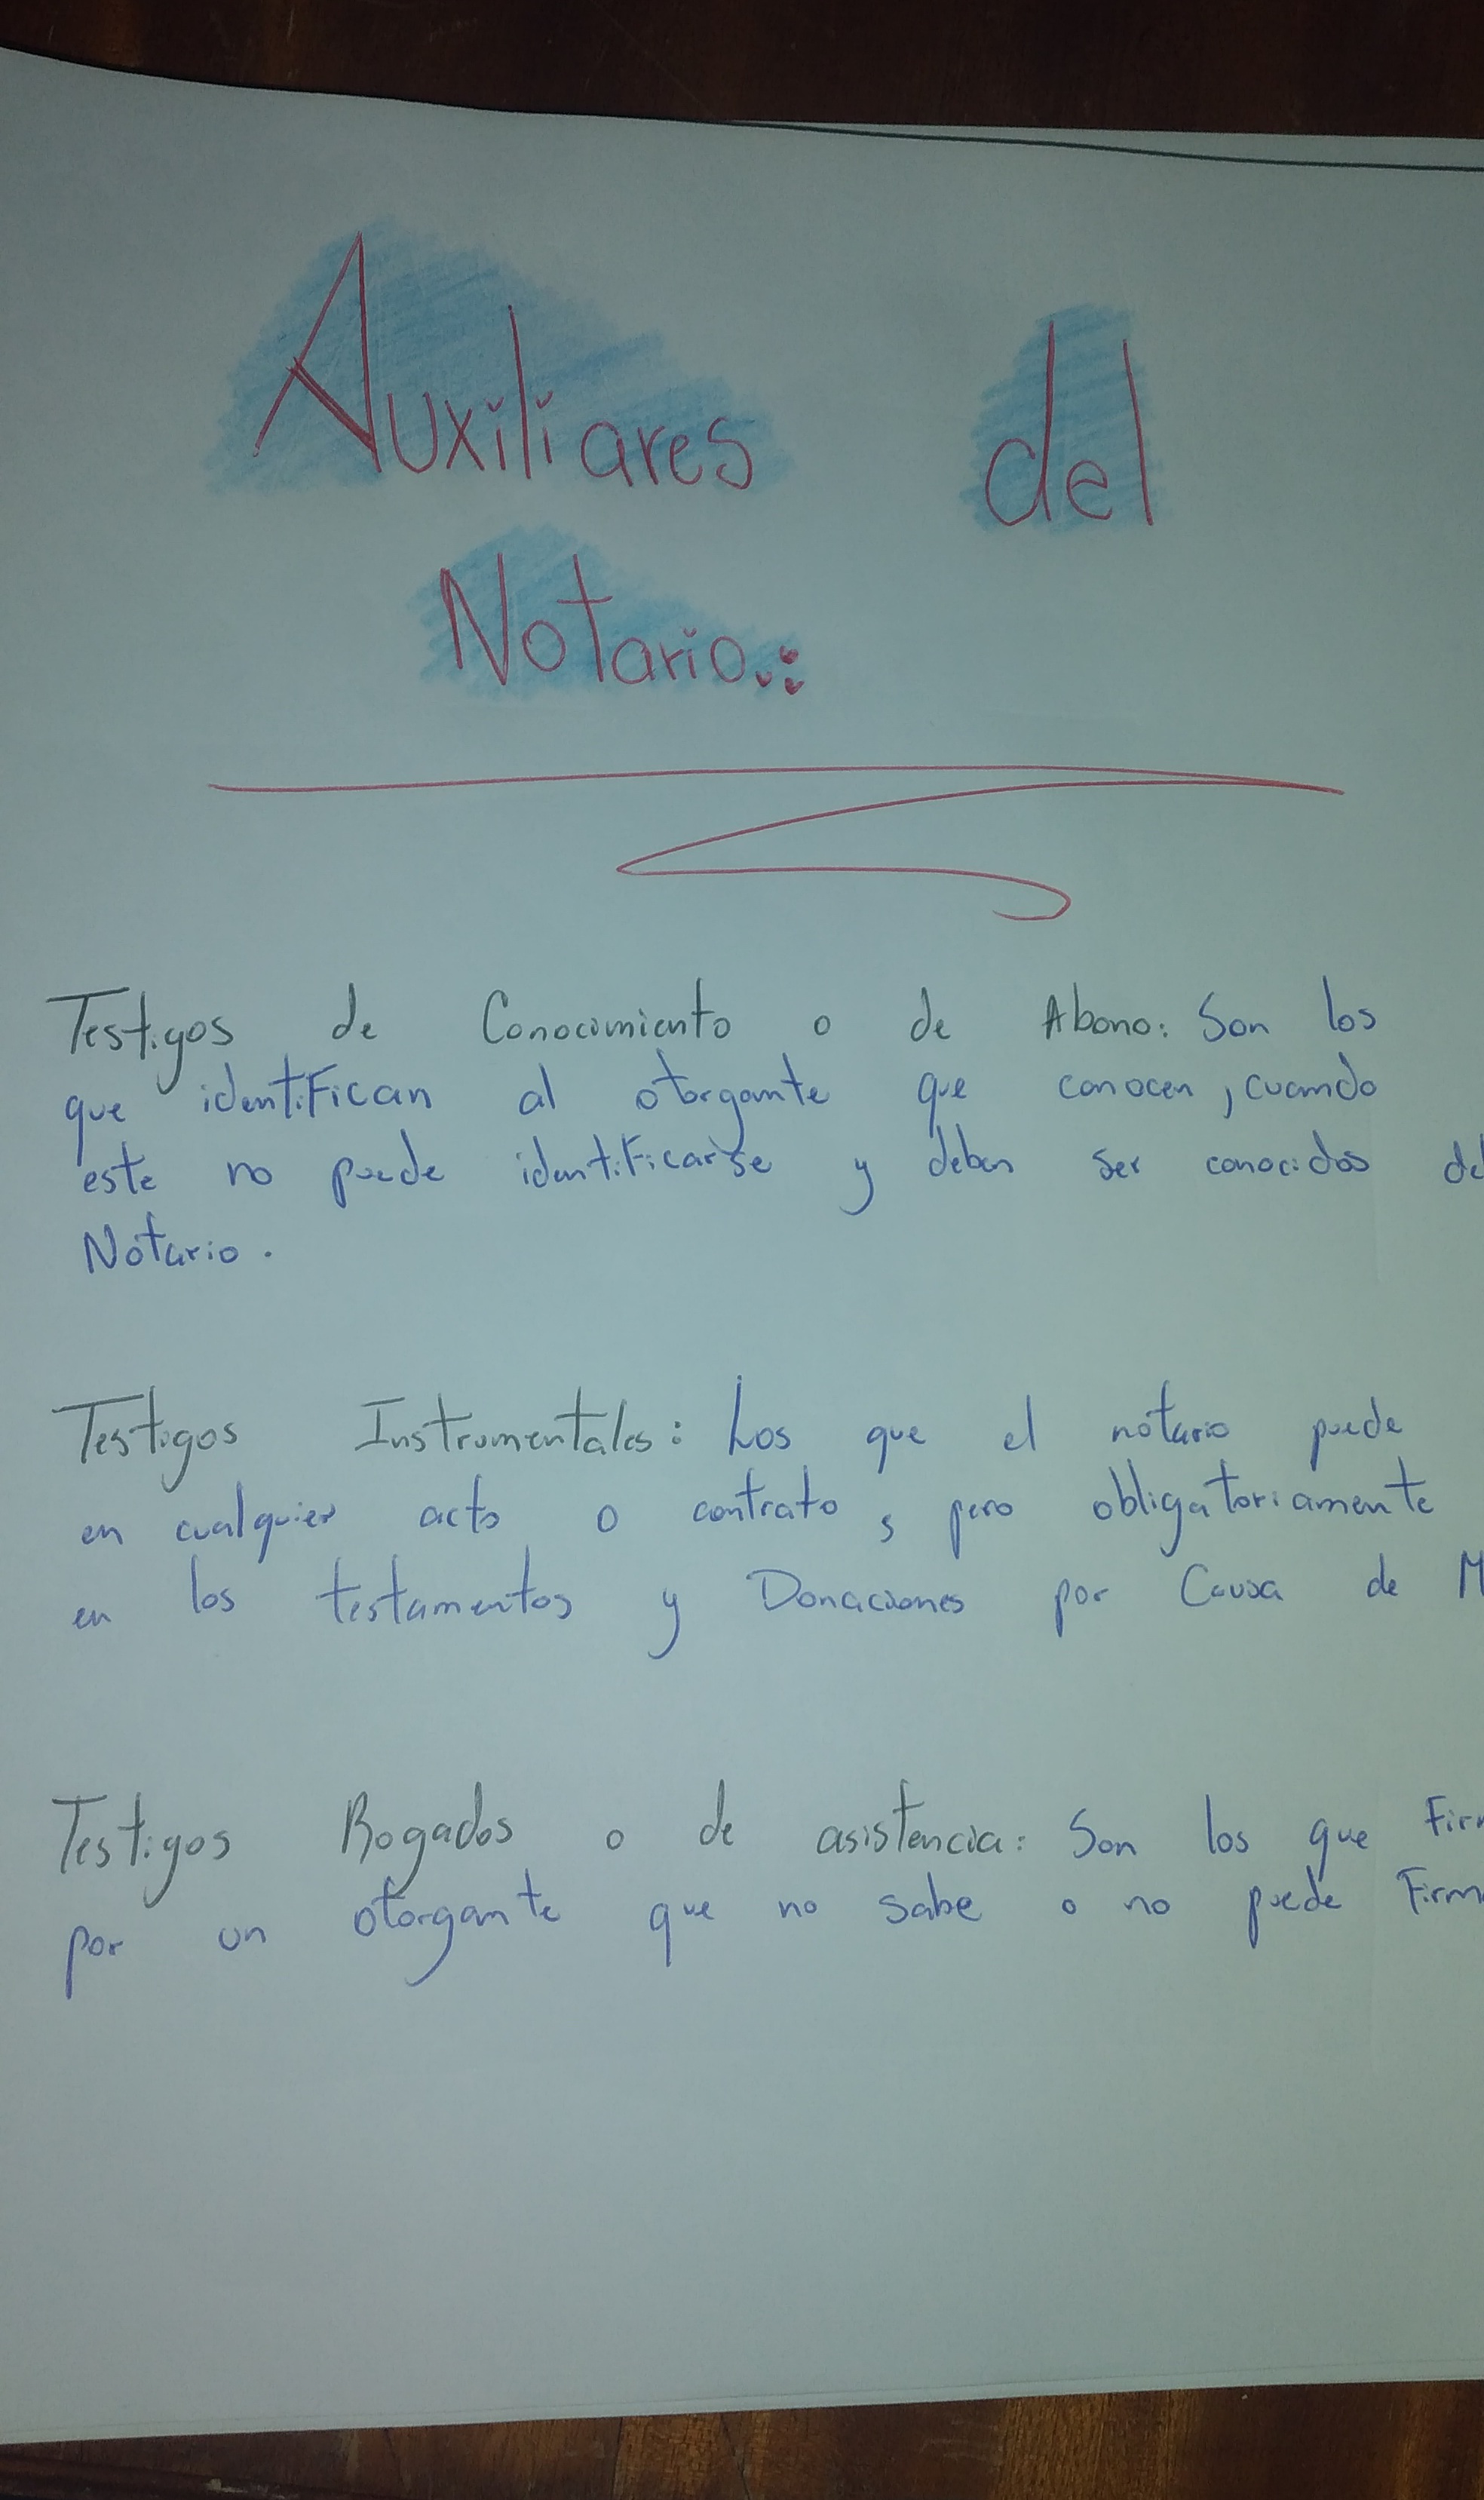 Auxiliares del
Notario.:
Testigos de Conocimiento o de Abono: Son los
que identifican al otorgante que conocen, cuando
este no puede identificarse y deben ser conocidos del
Notario.
Testigos Instrumentales: Los que el notario puede
en cualquier acto o contrato, pero obligatoriamente
en los testamentos y Donaciones por Causa de M
Testigos Rogados o de asistencia: Son los que Firm
por un otorgante que no sabe o no puede Firma